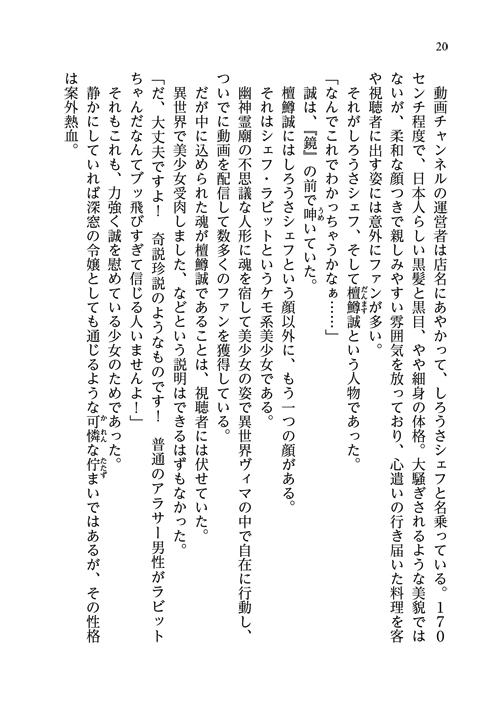 20
動画チャンネルの運営者は店名にあやかって、しろうさシェフと名乗っている。170
センチ程度で、日本人らしい黒髪と黒目、やや細身の体格。大騒ぎされるような美貌では
ないが、柔和な顔つきで親しみやすい雰囲気を放っており、心遣いの行き届いた料理を客
や視聴者に出す姿には意外にファンが多い。
それがしろうさシェフ、そして檀鱒誠という人物であった。
「なんでこれでわかっちゃうかなぁ……」
誠は、『鏡』の前で呻いていた。
檀鱒誠にはしろうさシェフという顔以外に、もう一つの顔がある。
それはシェフ・ラビットというケモ系美少女である。
幽神霊廟の不思議な人形に魂を宿して美少女の姿で異世界ヴィマの中で自在に行動し、
ついでに動画を配信して数多くのファンを獲得している。
だが中に込められた魂が檀鱒誠であることは、視聴者には伏せていた。
異世界で美少女受肉しました、などという説明はできるはずもなかった。
「だ、大丈夫ですよ！　奇説珍説のようなものです！　普通のアラサー男性がラビット
ちゃんだなんてブッ飛びすぎて信じる人いませんよ！」
それもこれも、力強く誠を慰めている少女のためであった。
静かにしていれば深窓の令嬢としても通じるような可憐な佇まいではあるが、その性格
は案外熱血。